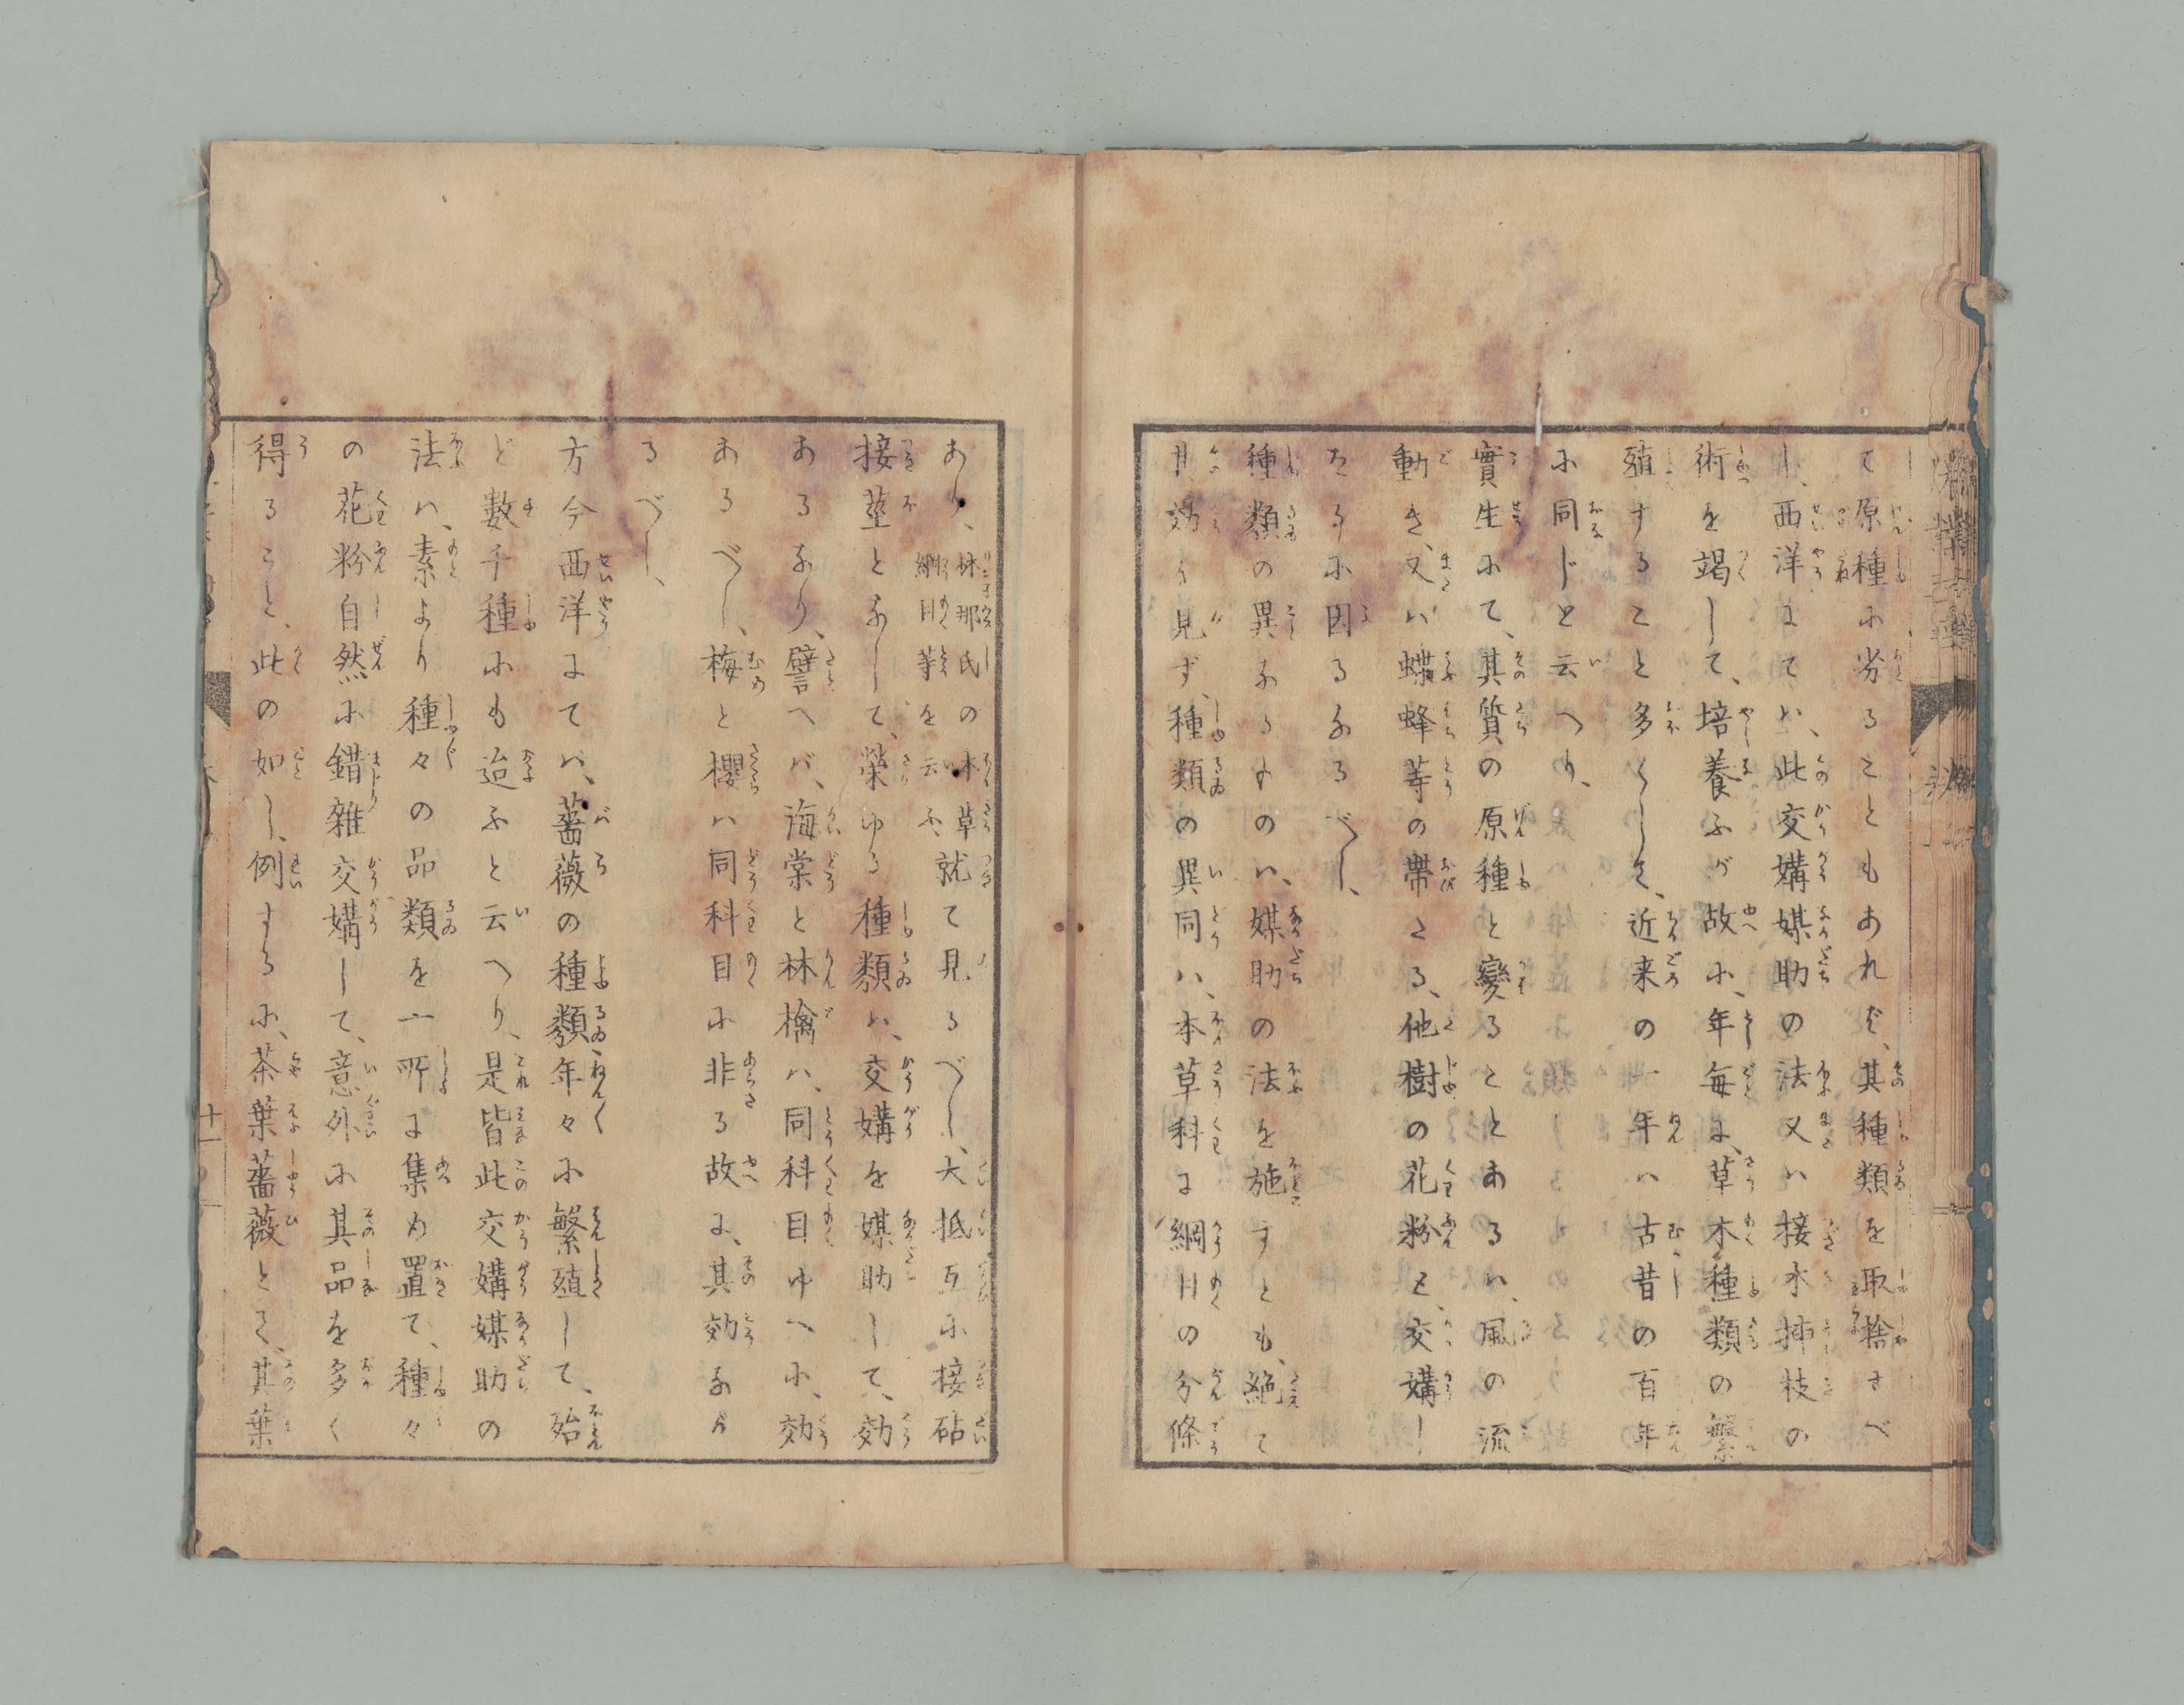 て原種に劣ることもあれば、其種類を取捨すべ
し、西洋にてハ、此交媾媒助の法又ハ接木挿枝の
術を竭して、培養ふが故に、年毎に、草木種類の繁
殖すること多くして、近来の一年ハ古昔の百年
に同じと云へり、
實生にて、其質の原種と變ることあるハ、風の流
動き、又ハ蝶蜂等の帯たる、他樹の花粉と、交媾し
たるに因るなるべし、
種類の異なるものハ、媒助の法を施すとも、絶て
其効を見ず、種類の異同ハ、本草科に綱目の分條
あり、林那氏の綱目等を云ふ、本草就て見るべし、大抵互に接砧
接莖となして、榮ゆる種類ハ、交媾を媒助して、効
あるなり、譬へバ、海棠と林檎ハ、同科目ゆへに、効
あるべし、梅と櫻ハ同科目に非る故に、其効なか
るべし、
方今西洋にてハ、薔薇の種類年々に繁殖して、殆
ど數千種にも迨ふと云へり、是皆此交媾媒助の
法ハ、素より種々の品類を一所に集め置て、種々
の花粉自然に錯雜交媾して、意外に其品を多く
得ること、此の如し、例するに、茶葉薔薇とて、其葉
十一